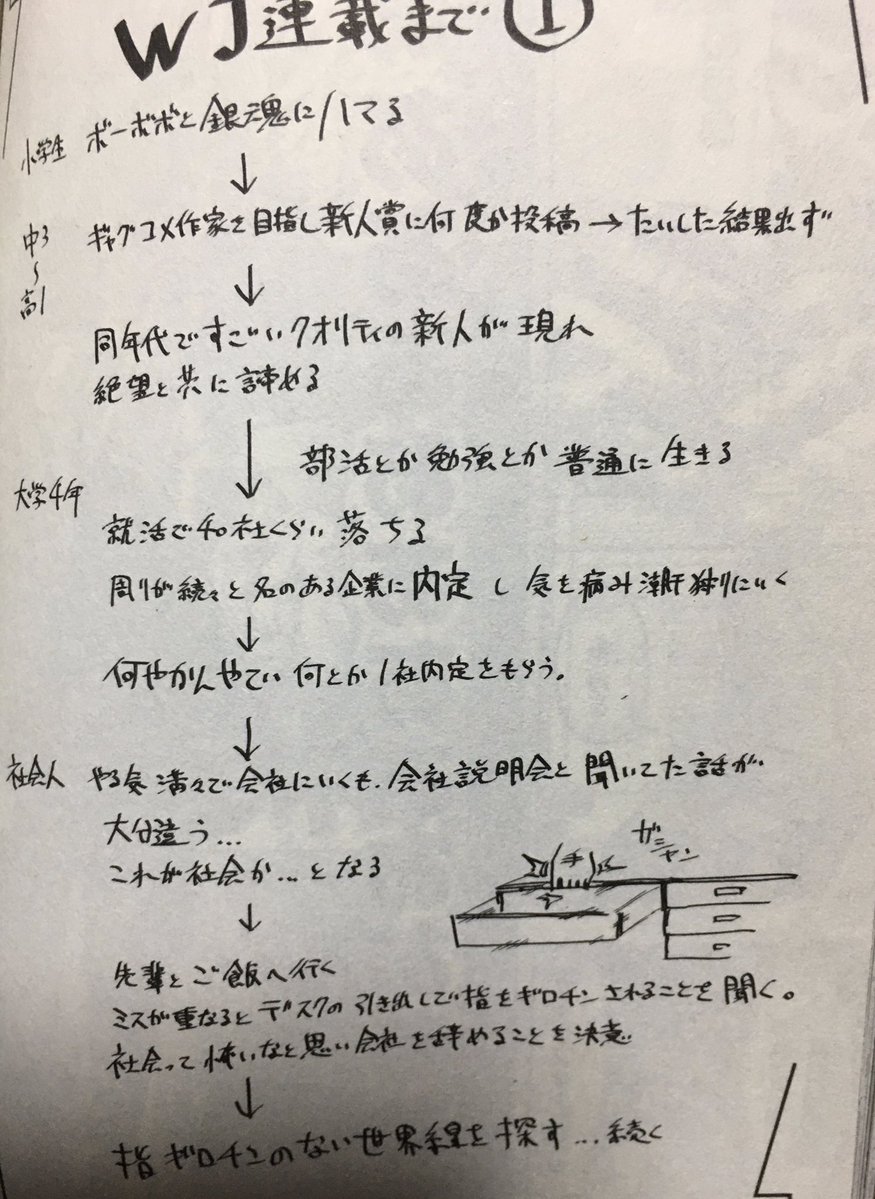 WJ連載まで①
小学生 ボーボボと銀魂にハてる
↓
中3〜高1 ギャグコメ作家を目指し新人賞に何度か投稿→たいした結果出ず
↓
同年代ですごいクオリティの新人が現れ
絶望と共に諦める
↓
部活とか勉強とか普通に生きる
大学4年
就活で40社くらい落ちる
周りが続々と名のある企業に内定し気を病み潮干狩りにいく
↓
何やかんやてい何とか1社内定をもらう。
↓
社会人 やる気満々で会社にいくも、会社説明会と聞いてた話が
大分違う…
これが社会か…となる
ガシャン
↓
先輩とご飯へ行く
ミスが重なるとデスクの引き出しで指をギロチンされることを聞く。
社会って怖いなと思い会社を辞めることを決意
↓
指ギロチンのない世界線を探す…続く